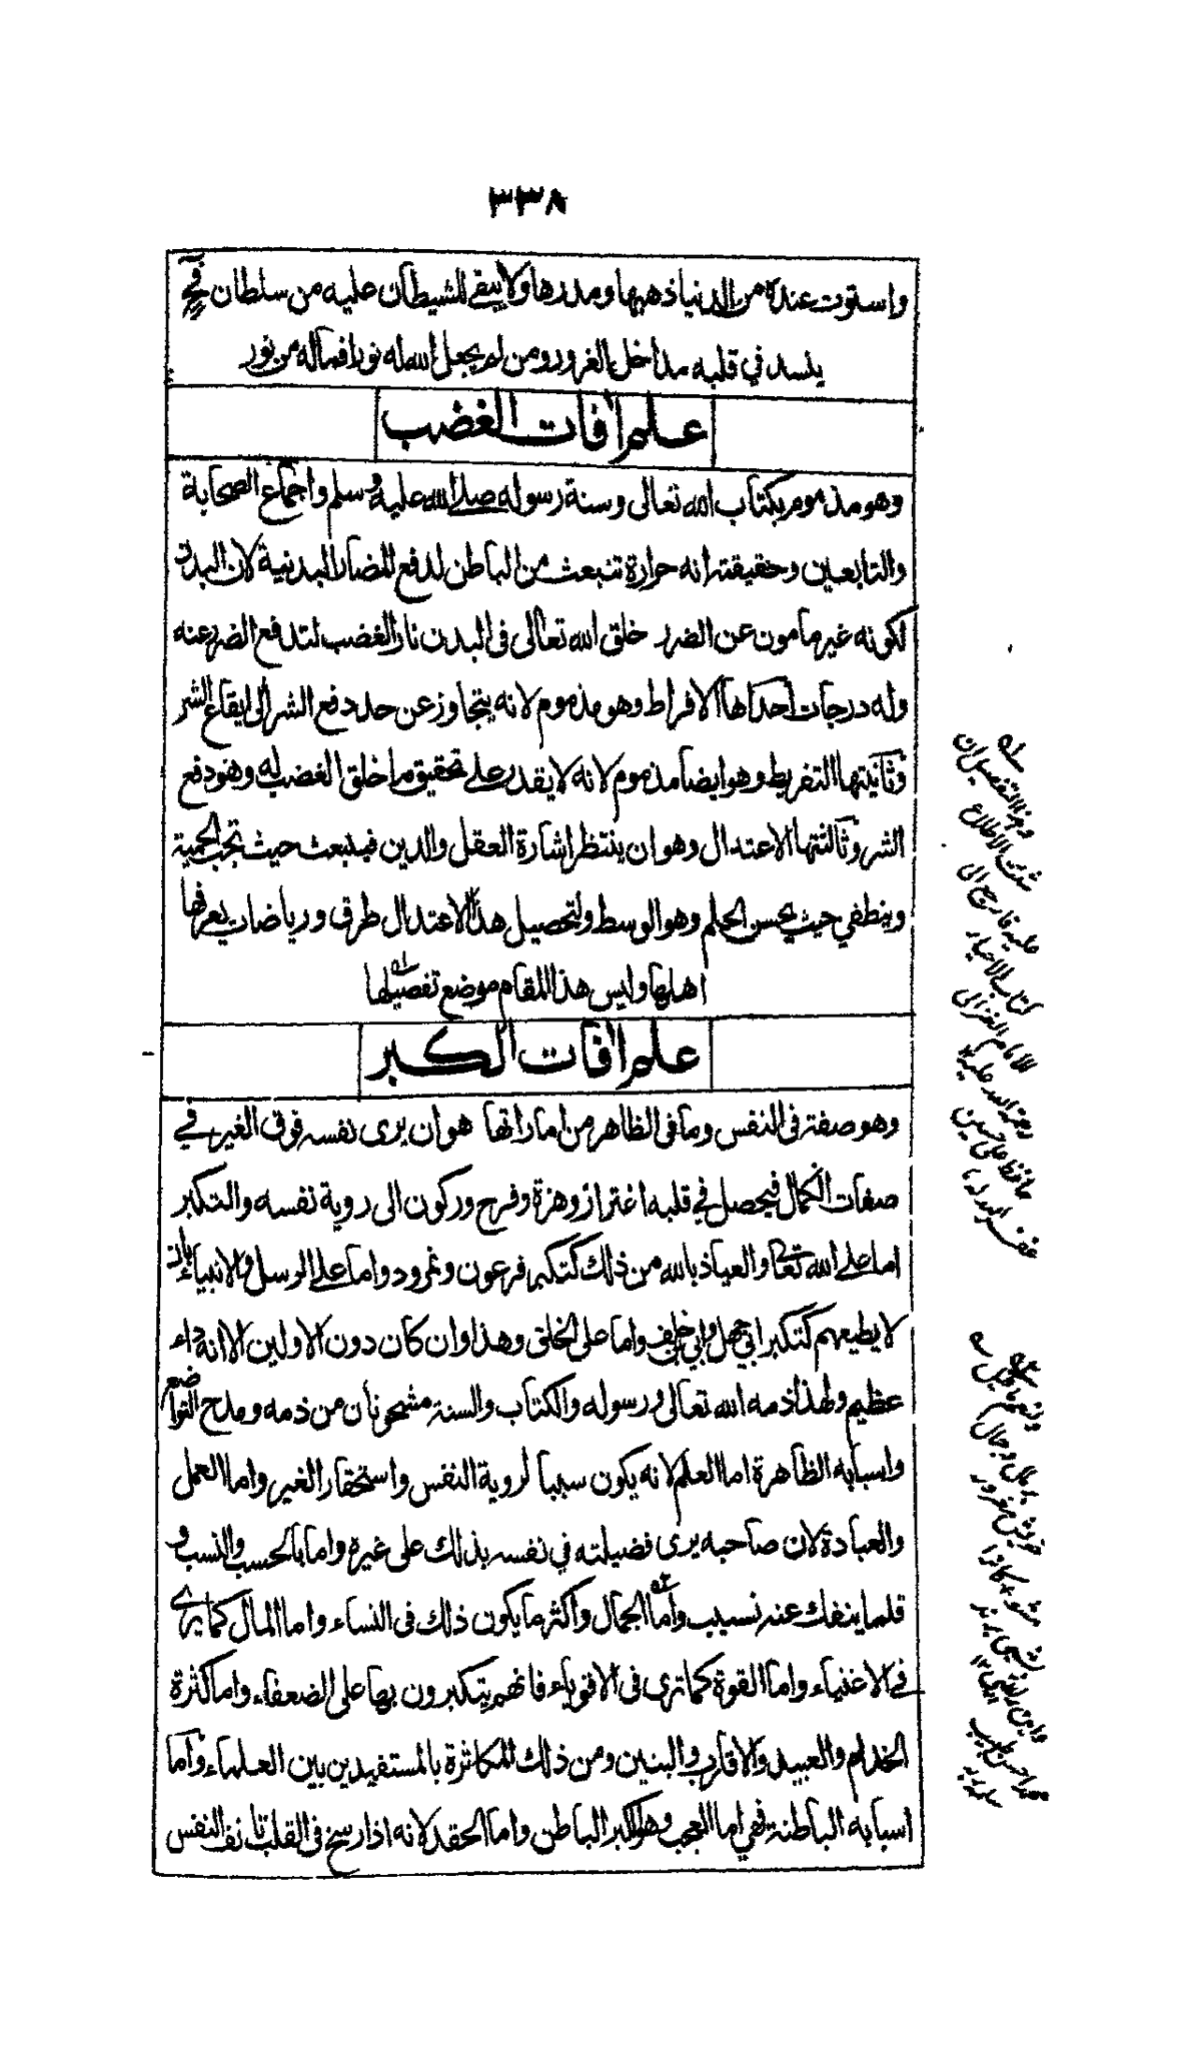 ٣٣٨
واستوت عنده من الدنيا ذهبها ومدرها ولا يبقى للشيطان عليه من سلطان فح
ينسد في قلبه مداخل الغرور ومن لم يجعل الله له نورا فما له من نور
علم افات الغضب
وهو مذموم بكتاب الله تعالى وسنة رسوله صلى الله عليه وسلم واجماع الصحابة
والتابعين وحقيقته انه حرارة تنبعث من الباطن لدفع المضار البدنية لان البدن
لكونه غير مامون عن الضرر خلق الله تعالى فى البدن نار الغضب لتدفع الضرر عنه
وله درجات احداها الافراط وهو مذموم لانه يتجاوز عن حد دفع الشر الى ايقاع الشر
وثانيتها التفريط وهو ايضا مذموم لانه لا يقدر على تحقيق ما خلق الغضب له وهو دفع
الشر وثالثتها الاعتدال وهو ان ينتظر اشارة العقل والدين فينبعث حيث تجب الحمية
وينطفي حيث يحسن الحلم وهو الوسط ولتحصيل هذا الاعتدال طرق ورياضات يعرفها
اهلها وليس هذا المقام موضع تفصيلها
علم افات الكبر
وهو صفة فى النفس وما فى الظاهر من اماراتها هو ان يرى نفسه فوق الغير في
صفات الكمال فيحصل في قلبه اغترار وهزة وفرح وركون الى روية نفسه والتكبر
اما على الله تعالى والعياذ بالله من ذلك كتكبر فرعون ونمرود واما على الرسل والانبياء بان
لا يطيعهم كتكبر ابي جهل وابي خلف واما على الخلق وهذا وان كان دون الاولين الا انه داء
عظيم ولهذا ذمه الله تعالى ورسوله والكتاب والسنة مشحونان من ذمه ومدح التواضع
واسبابه الظاهرة اما العلم لانه يكون سببا لروية النفس واستحقار الغير واما العمل
والعبادة لان صاحبه يرى فضيلته في نفسه بذلك على غيره واما بالحسب والنسب و
قلما ينفك عنه نسيب واما الجمال واكثر ما يكون ذلك فى النساء واما المال كما يرى
في الاغنياء واما القوة كما ترى فى الاقوياء فانهم يتكبرون بها على الضعفاء واما كثرة
الخدام والعبيد والاقارب والبنين ومن ذلك المكاثرة بالمستفيدين بين العلماء واما
اسبابه الباطنة فهي اما العجب وهو الكبر الباطن واما الحقد لانه اذا رسخ فى القلب تانف النفس
وهذا التفصيل ان
شئت الاطلاع
عليه فارجع الى
كتاب الاحياء
للامام الغزالى
رحمة الله عليه